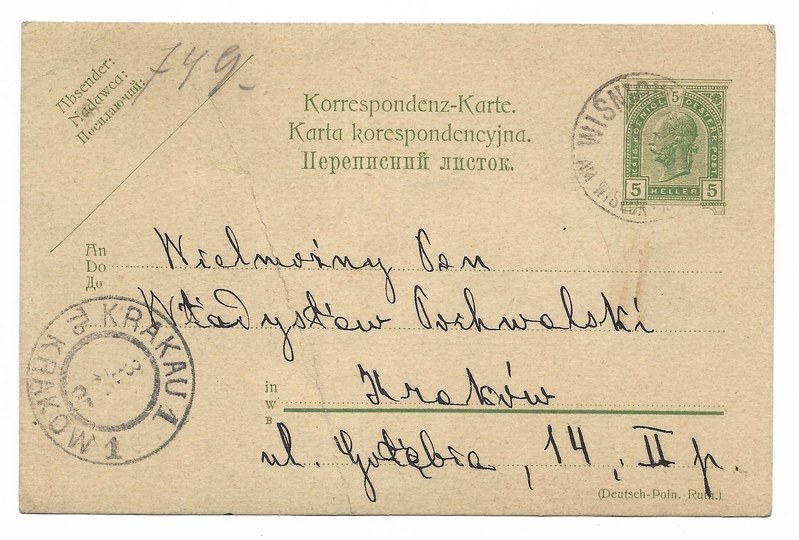 Absender:
Nadawca:
Посилаючий:
749.
Korrespondenz-Karte.
Karta korespondencyjna.
Переписний листок.
5
KAIS. KOENIGL. OESTERR. POST
5 HELLER 5
AM WISLOK
An
Do
До
Wielmożny Pan
Władysław Pochwalski
in
w
в
Kraków
ul. Gołębia, 14, II p.
KRAKAU 1
KRAKÓW 1
(Deutsch-Poln. Ruth.)